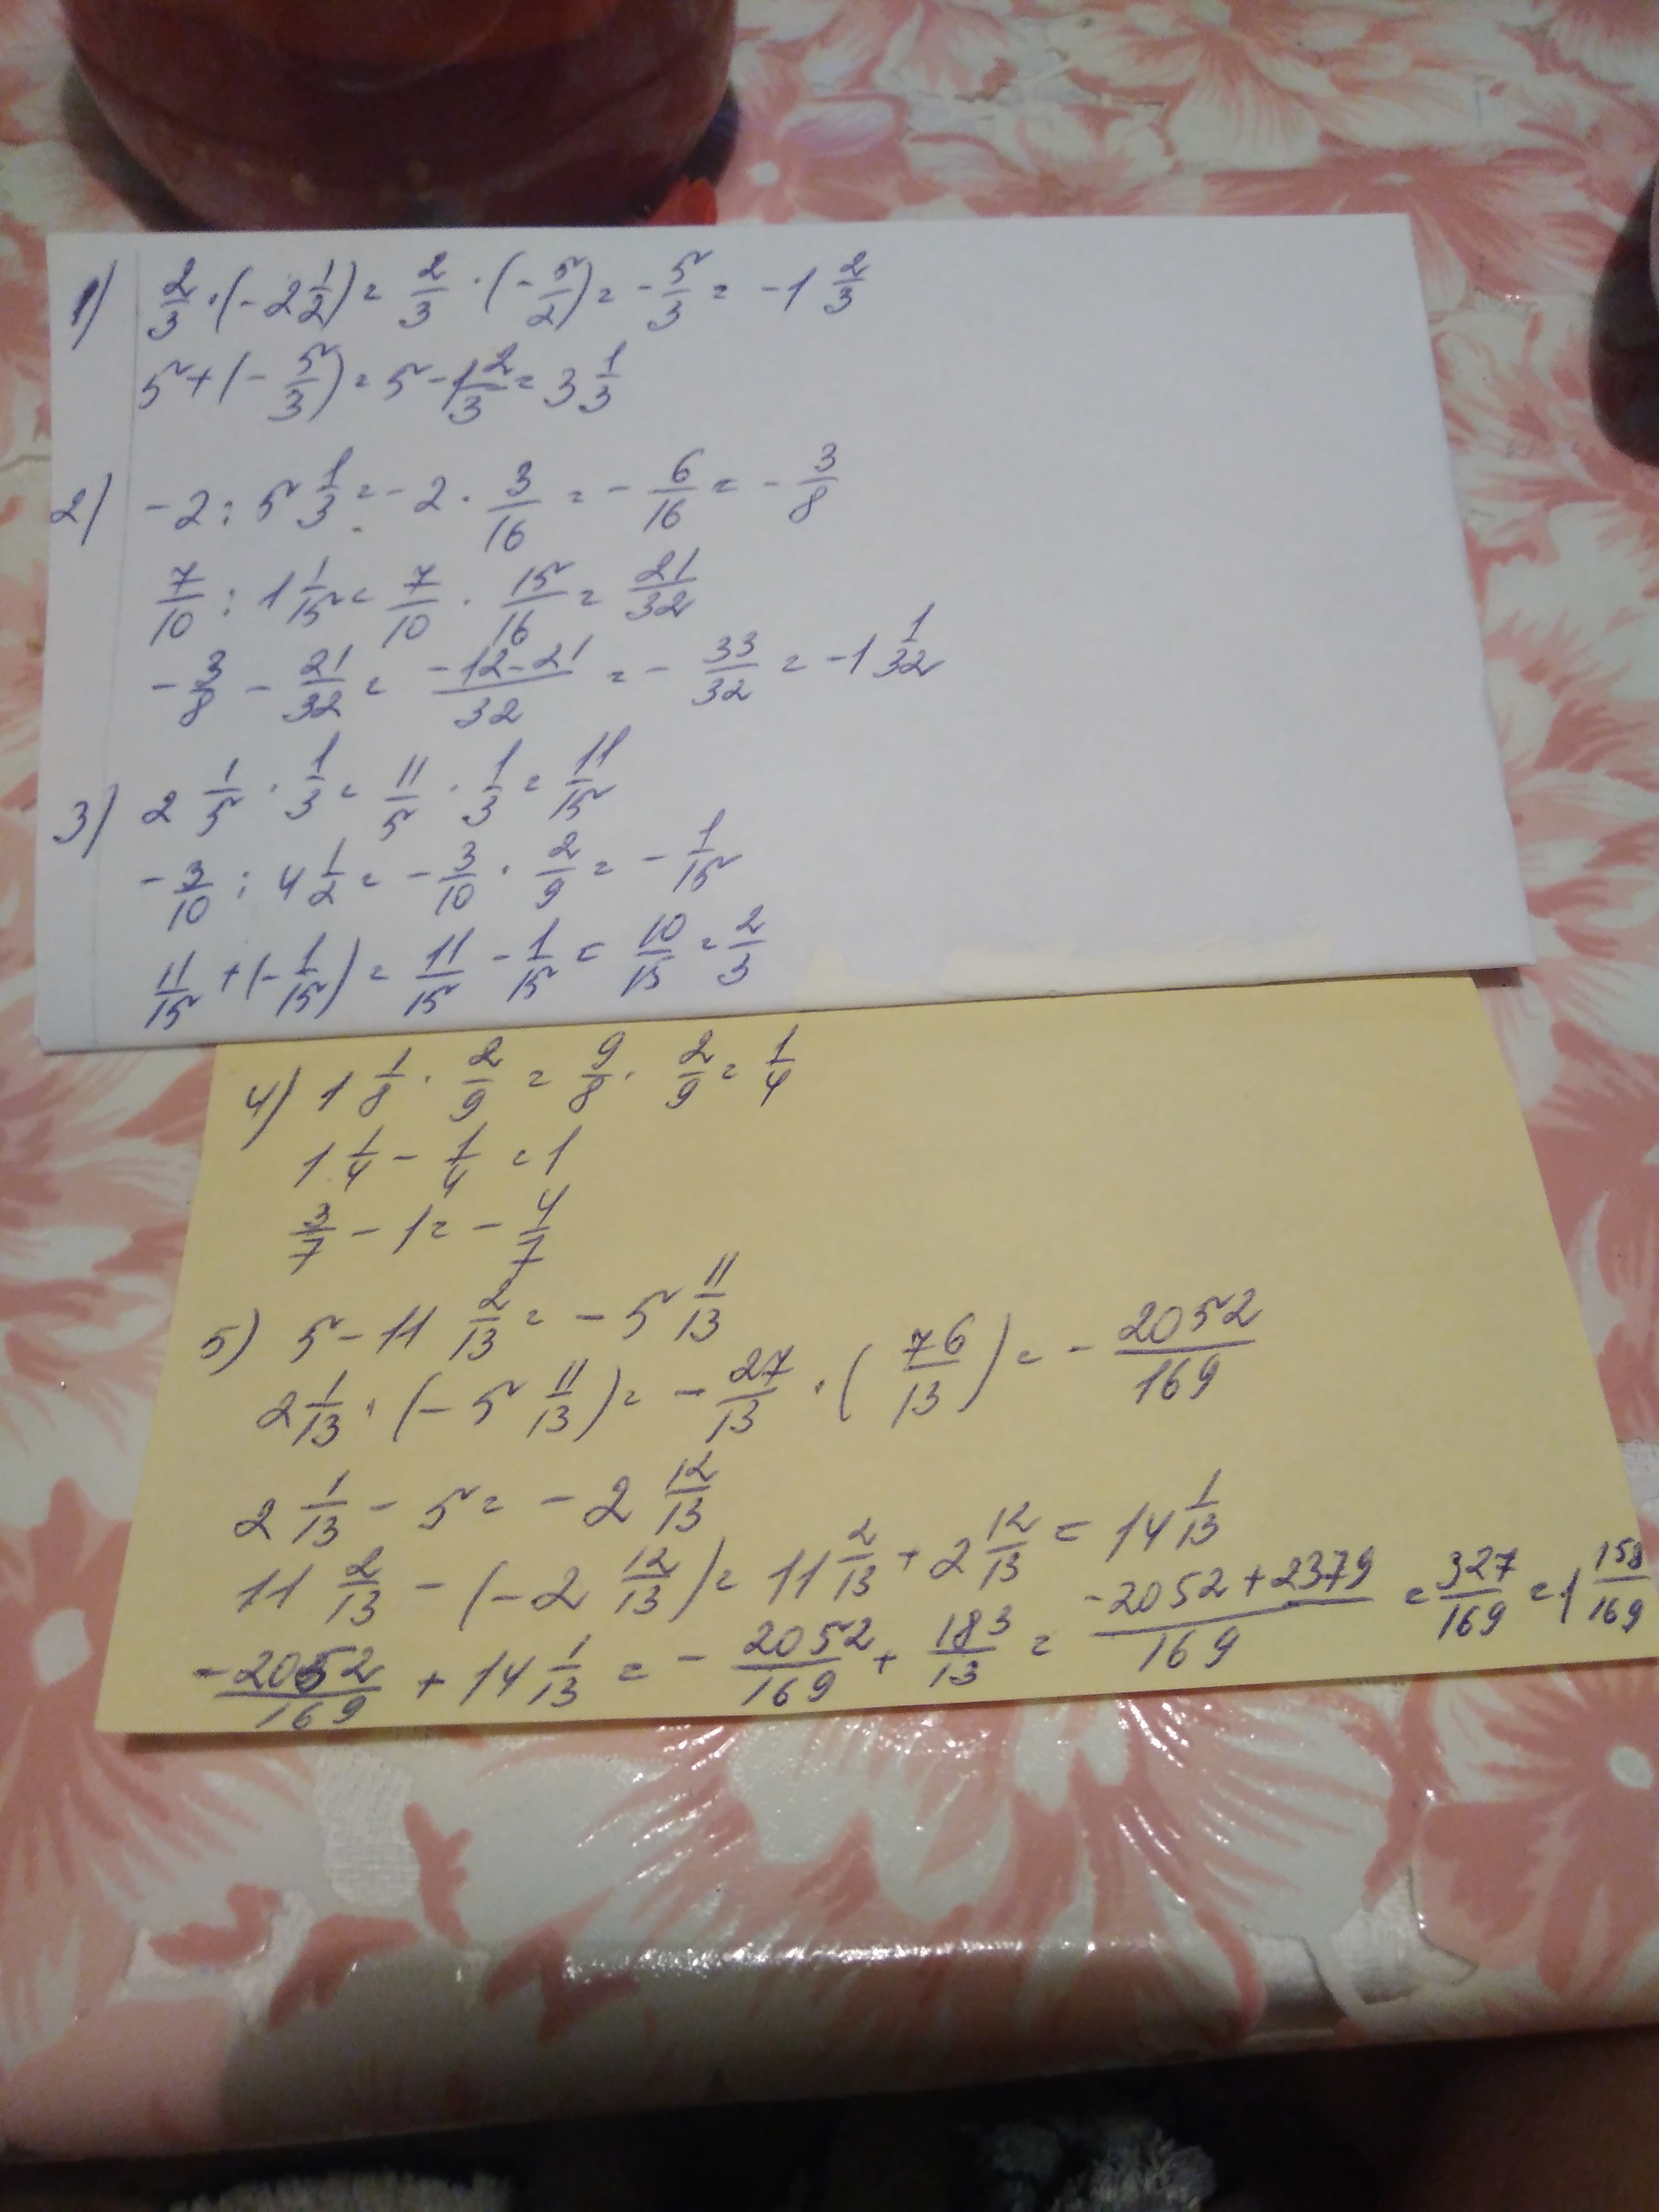 1) 2/3 · (- 2 1/2) = 2/3 · (- 5/2) = - 5/3 = -1 2/3
5 + (- 5/3) = 5 - 1 2/3 = 3 1/3
2) -2 : 5 1/3 = - 2 · 3/16 = - 6/16 = - 3/8
7/10 : 1 1/15 = 7/10 · 15/16 = 21/32
- 3/8 - 21/32 = -12-21/32 = - 33/32 = -1 1/32
3) 2 1/5 · 1/3 = 11/5 · 1/3 = 11/15
- 3/10 : 4 1/2 = - 3/10 · 2/9 = - 1/15
11/15 + (- 1/15) = 11/15 - 1/15 = 10/15 = 2/3
4) 1 1/8 · 2/9 = 9/8 · 2/9 = 1/4
1 1/4 - 1/4 = 1
3/7 - 1 = - 4/7
5) 5 - 11 2/13 = - 5 11/13
2 1/13 · (- 5 11/13) = - 27/13 · (76/13) = - 2052/169
2 1/13 - 5 = - 2 12/13
11 2/13 - (- 2 12/13) = 11 2/13 + 2 12/13 = 14 1/13
- 2052/169 + 14 1/13 = - 2052/169 + 183/13 = -2052+2379/169 = 327/169 = 1 158/169